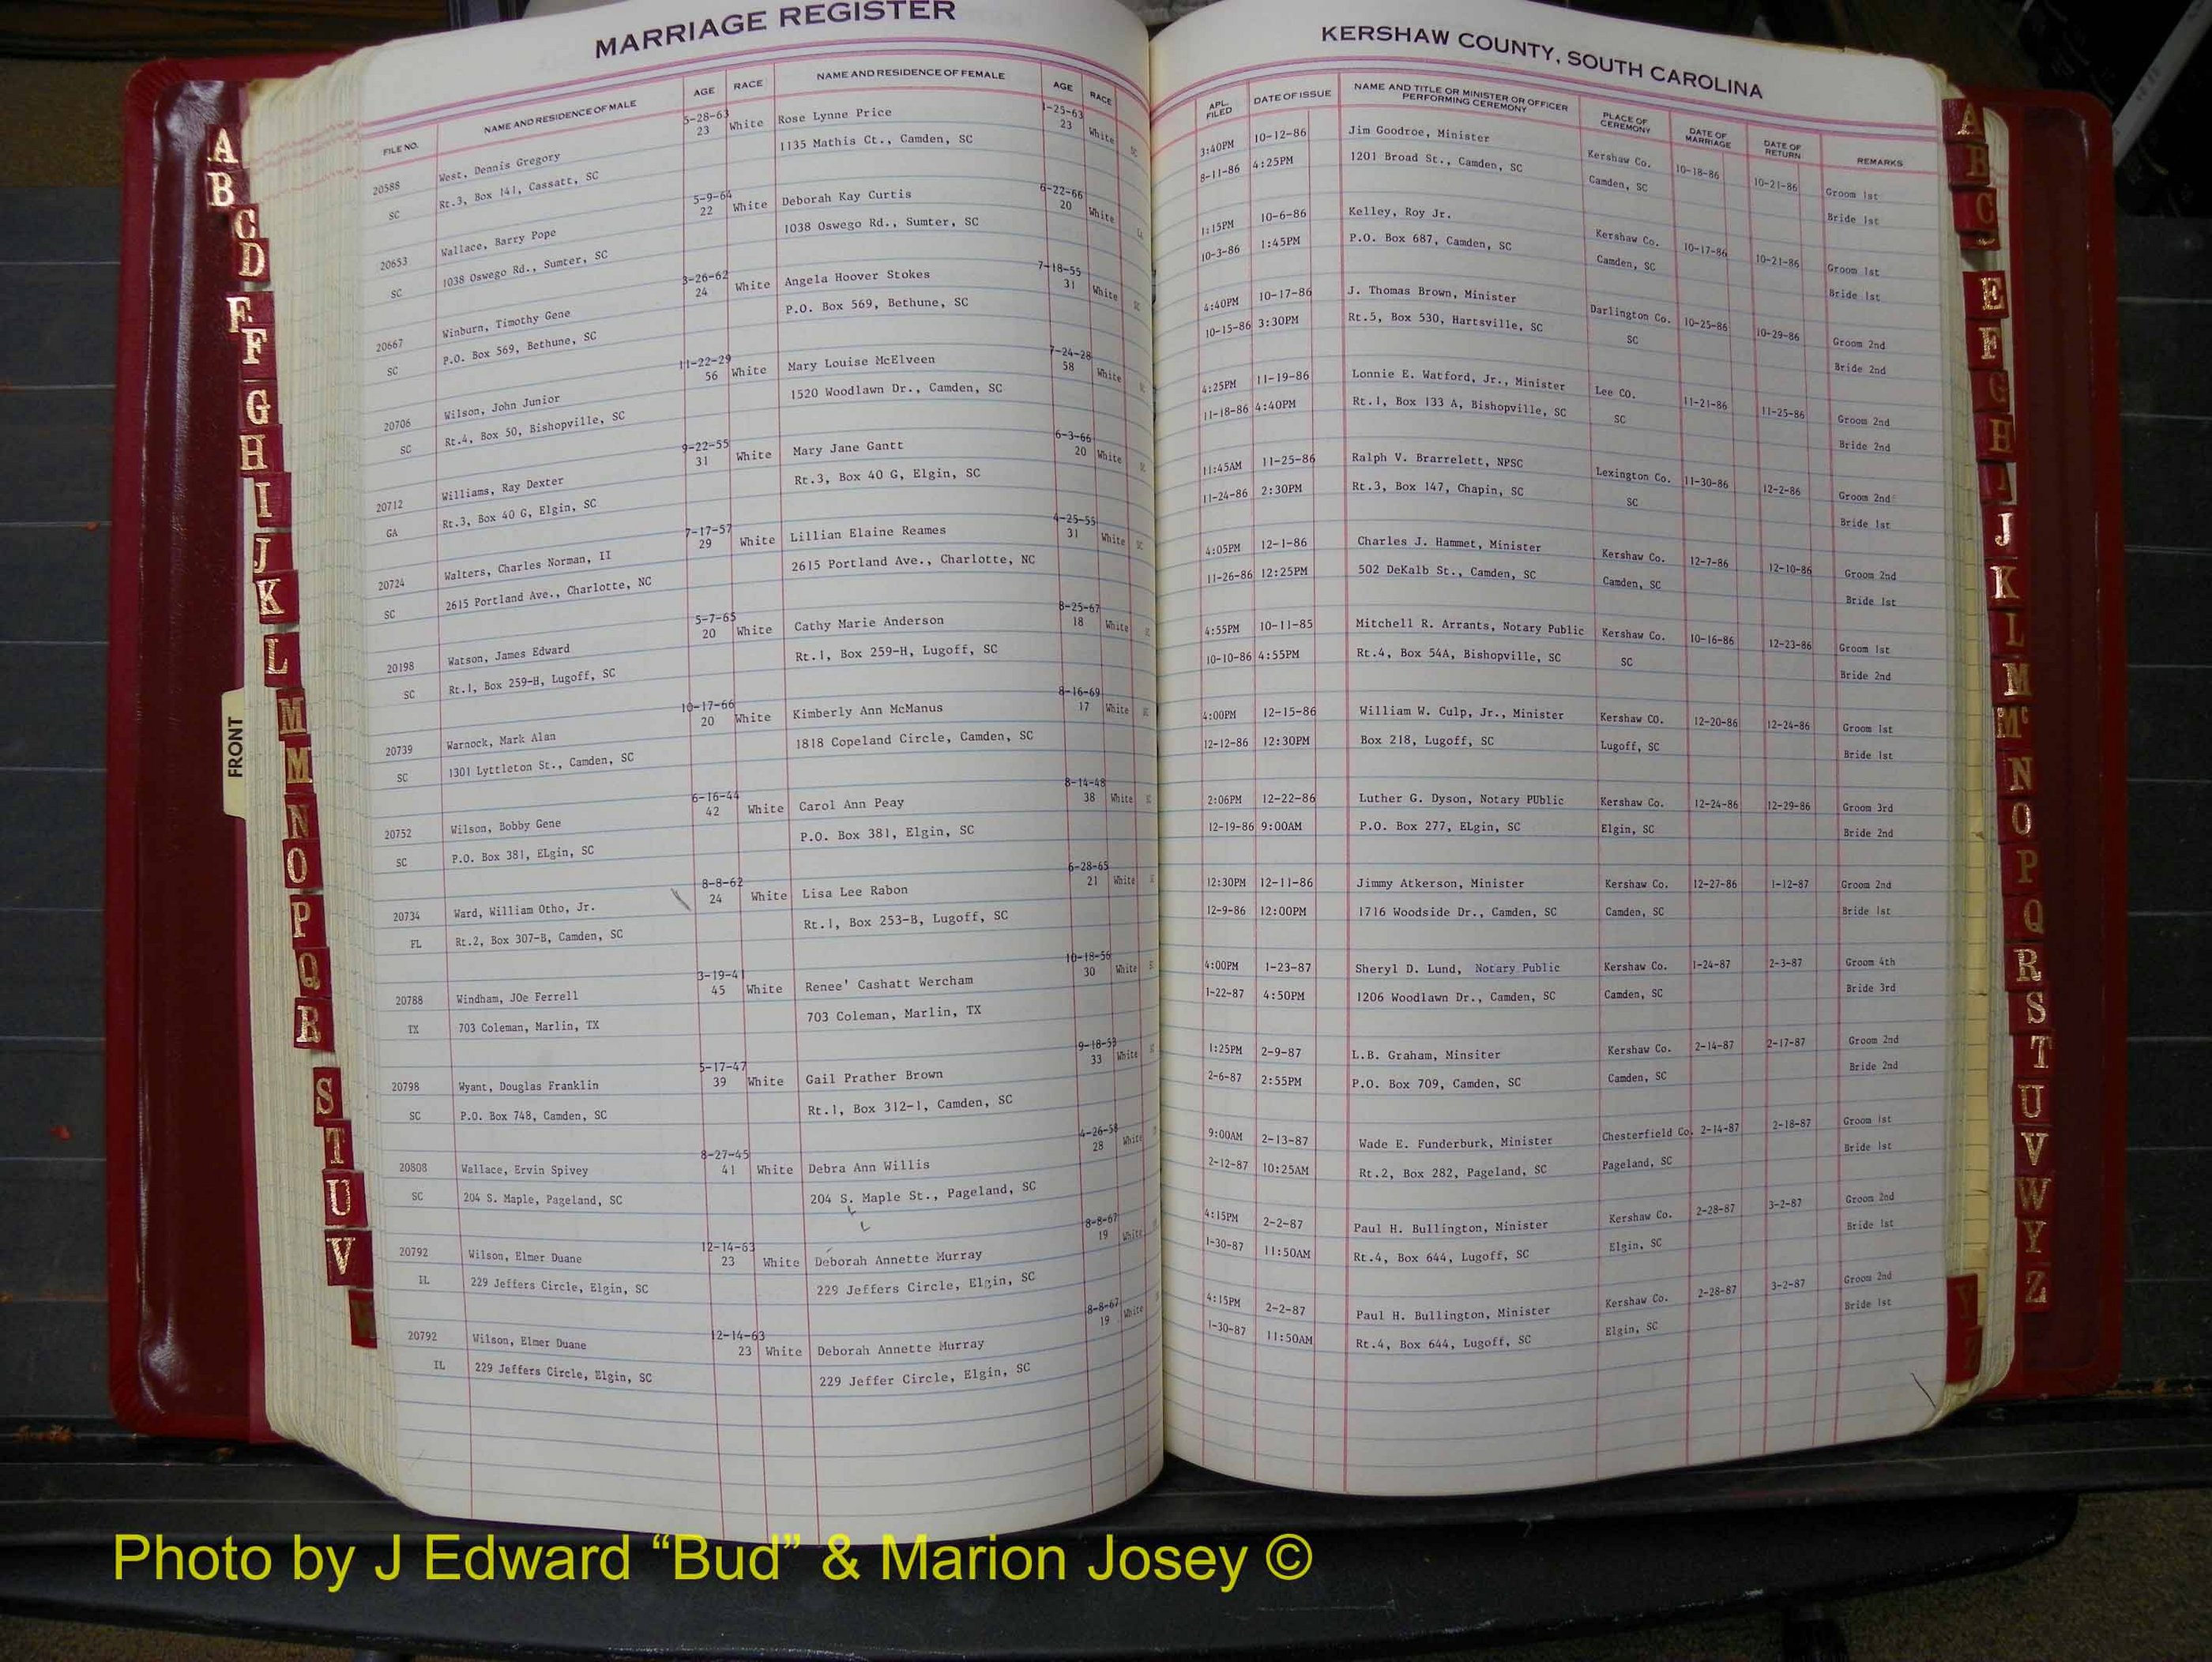 MARRIAGE REGISTER
KERSHAW COUNTY, SOUTH CAROLINA
FILE NO. NAME AND RESIDENCE OF MALE AGE RACE NAME AND RESIDENCE OF FEMALE AGE RACE
APL. FILED DATE OF ISSUE NAME AND TITLE OR MINISTER OR OFFICER PERFORMING CEREMONY PLACE OF CEREMONY DATE OF MARRIAGE DATE OF RETURN REMARKS
20588 West, Dennis Gregory 5-28-63 23 White Rose Lynne Price 1-25-63 23 White
SC Rt.3, Box 141, Cassatt, SC 1135 Mathis Ct., Camden, SC SC
3:40PM 10-12-86 Jim Goodroe, Minister Kershaw Co. 10-18-86 10-21-86 Groom 1st
8-11-86 4:25PM 1201 Broad St., Camden, SC Camden, SC Bride 1st
20653 Wallace, Barry Pope 5-9-64 22 White Deborah Kay Curtis 6-22-66 20 White
SC 1038 Oswego Rd., Sumter, SC 1038 Oswego Rd., Sumter, SC
1:15PM 10-6-86 Kelley, Roy Jr. Kershaw Co. 10-17-86 10-21-86 Groom 1st
10-3-86 1:45PM P.O. Box 687, Camden, SC Camden, SC Bride 1st
20667 Winburn, Timothy Gene 3-26-62 24 White Angela Hoover Stokes 7-18-55 31 White
SC P.O. Box 569, Bethune, SC P.O. Box 569, Bethune, SC SC
4:40PM 10-17-86 J. Thomas Brown, Minister Darlington Co. 10-25-86 10-29-86 Groom 2nd
10-15-86 3:30PM Rt.5, Box 530, Hartsville, SC SC Bride 2nd
20706 Wilson, John Junior 11-22-29 56 White Mary Louise McElveen 7-24-28 58 White
SC Rt.4, Box 50, Bishopville, SC 1520 Woodlawn Dr., Camden, SC
4:25PM 11-19-86 Lonnie E. Watford, Jr., Minister Lee CO. 11-21-86 11-25-86 Groom 2nd
11-18-86 4:40PM Rt.1, Box 133 A, Bishopville, SC SC Bride 2nd
20712 Williams, Ray Dexter 9-22-55 31 White Mary Jane Gantt 6-3-66 20 White
GA Rt.3, Box 40 G, Elgin, SC Rt.3, Box 40 G, Elgin, SC
11:45AM 11-25-86 Ralph V. Brarrelett, NPSC Lexington Co. 11-30-86 12-2-86 Groom 2nd
11-24-86 2:30PM Rt.3, Box 147, Chapin, SC SC Bride 1st
20724 Walters, Charles Norman, II 7-17-57 29 White Lillian Elaine Reames 4-25-55 31 White SC
SC 2615 Portland Ave., Charlotte, NC 2615 Portland Ave., Charlotte, NC
4:05PM 12-1-86 Charles J. Hammet, Minister Kershaw Co. 12-7-86 12-10-86 Groom 2nd
11-26-86 12:25PM 502 DeKalb St., Camden, SC Camden, SC Bride 1st
20198 Watson, James Edward 5-7-65 20 White Cathy Marie Anderson 8-25-67 18 White
SC Rt.1, Box 259-H, Lugoff, SC Rt.1, Box 259-H, Lugoff, SC
4:55PM 10-11-85 Mitchell R. Arrants, Notary Public Kershaw Co. 10-16-86 12-23-86 Groom 1st
10-10-86 4:55PM Rt.4, Box 54A, Bishopville, SC SC Bride 2nd
20739 Warnock, Mark Alan 10-17-66 20 White Kimberly Ann McManus 8-16-69 17 White
SC 1301 Lyttleton St., Camden, SC 1818 Copeland Circle, Camden, SC
4:00PM 12-15-86 William W. Culp, Jr., Minister Kershaw CO. 12-20-86 12-24-86 Groom 1st
12-12-86 12:30PM Box 218, Lugoff, SC Lugoff, SC Bride 1st
20752 Wilson, Bobby Gene 6-16-44 42 White Carol Ann Peay 8-14-48 38 White
SC P.O. Box 381, ELgin, SC P.O. Box 381, Elgin, SC
2:06PM 12-22-86 Luther G. Dyson, Notary PUblic Kershaw Co. 12-24-86 12-29-86 Groom 3rd
12-19-86 9:00AM P.O. Box 277, ELgin, SC Elgin, SC Bride 2nd
20734 Ward, William Otho, Jr. 8-8-62 24 White Lisa Lee Rabon 6-28-65 21 White
FL Rt.2, Box 307-B, Camden, SC Rt.1, Box 253-B, Lugoff, SC
12:30PM 12-11-86 Jimmy Atkerson, Minister Kershaw Co. 12-27-86 1-12-87 Groom 2nd
12-9-86 12:00PM 1716 Woodside Dr., Camden, SC Camden, SC Bride 1st
20788 Windham, JOe Ferrell 3-19-41 45 White Renee' Cashatt Wercham 10-18-56 30 White
TX 703 Coleman, Marlin, TX 703 Coleman, Marlin, TX
4:00PM 1-23-87 Sheryl D. Lund, Notary Public Kershaw Co. 1-24-87 2-3-87 Groom 4th
1-22-87 4:50PM 1206 Woodlawn Dr., Camden, SC Camden, SC Bride 3rd
20798 Wyant, Douglas Franklin 5-17-47 39 White Gail Prather Brown 9-18-53 33 White
SC P.O. Box 748, Camden, SC Rt.1, Box 312-1, Camden, SC
1:25PM 2-9-87 L.B. Graham, Minsiter Kershaw Co. 2-14-87 2-17-87 Groom 2nd
2-6-87 2:55PM P.O. Box 709, Camden, SC Camden, SC Bride 2nd
20808 Wallace, Ervin Spivey 8-27-45 41 White Debra Ann Willis 4-26-58 28 White
SC 204 S. Maple, Pageland, SC 204 S. Maple St., Pageland, SC
9:00AM 2-13-87 Wade E. Funderburk, Minister Chesterfield Co. 2-14-87 2-18-87 Groom 1st
2-12-87 10:25AM Rt.2, Box 282, Pageland, SC Pageland, SC Bride 1st
20792 Wilson, Elmer Duane 12-14-63 23 White Deborah Annette Murray 8-8-67 19 White
IL 229 Jeffers Circle, Elgin, SC 229 Jeffers Circle, Elgin, SC
4:15PM 2-2-87 Paul H. Bullington, Minister Kershaw Co. 2-28-87 3-2-87 Groom 2nd
1-30-87 11:50AM Rt.4, Box 644, Lugoff, SC Elgin, SC Bride 1st
20792 Wilson, Elmer Duane 12-14-63 23 White Deborah Annette Murray 8-8-67 19 White
IL 229 Jeffers Circle, Elgin, SC 229 Jeffer Circle, Elgin, SC
4:15PM 2-2-87 Paul H. Bullington, Minister Kershaw Co. 2-28-87 3-2-87 Groom 2nd
1-30-87 11:50AM Rt.4, Box 644, Lugoff, SC Elgin, SC Bride 1st
A
B
C
D
E
F
G
H
I
J
K
L
M
M
N
O
P
Q
R
S
T
U
V
W
FRONT
A
B
C
E
F
G
H
I
J
K
L
M
Mc
N
O
P
Q
R
S
T
U
V
W
Y
Z
Photo by J Edward “Bud” & Marion Josey ©